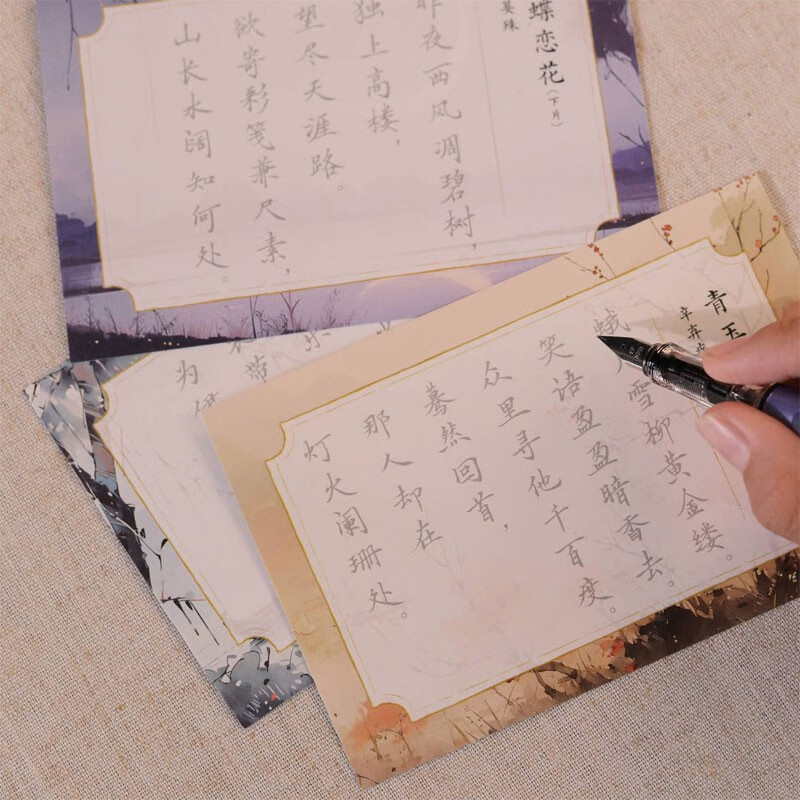 蝶恋花（下片）
晏殊
昨夜西风凋碧树，
独上高楼，
望尽天涯路。
欲寄彩笺兼尺素，
山长水阔知何处。
青玉
辛弃
蛾儿雪柳黄金缕。
笑语盈盈暗香去。
众里寻他千百度。
蓦然回首，
那人却在
灯火阑珊处。
带
为伊